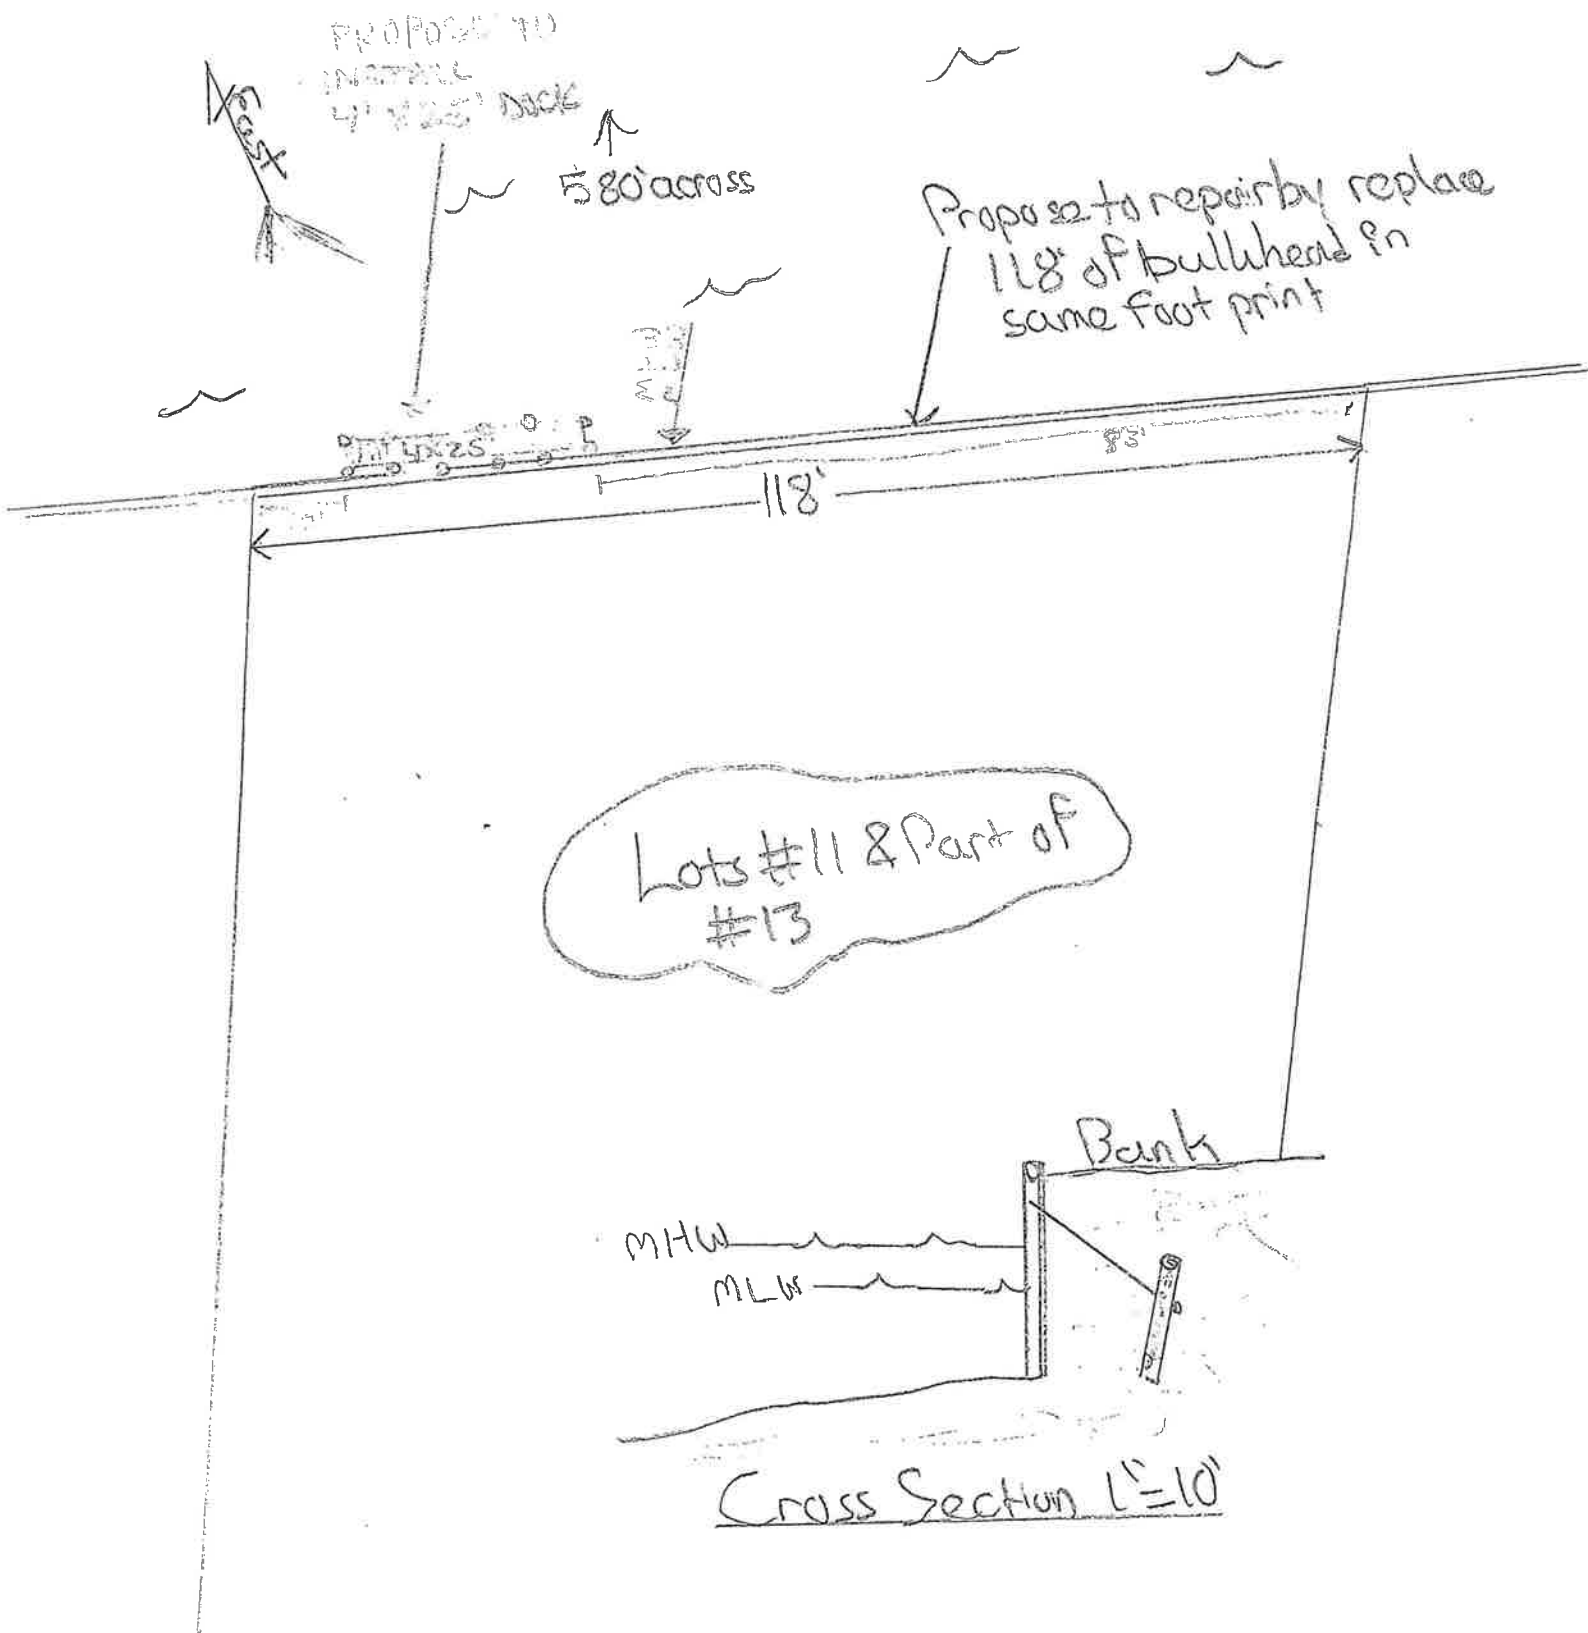 PROPOSE TO
INSTALL
4' X 25' DOCK
East
580' across
Propose to repair by replace
118' of bullhead in
same foot print
MHW
4x25
83'
118'
Lots #11 & Part of
#13
Bank
MHW
MLW
Cross Section 1"=10'